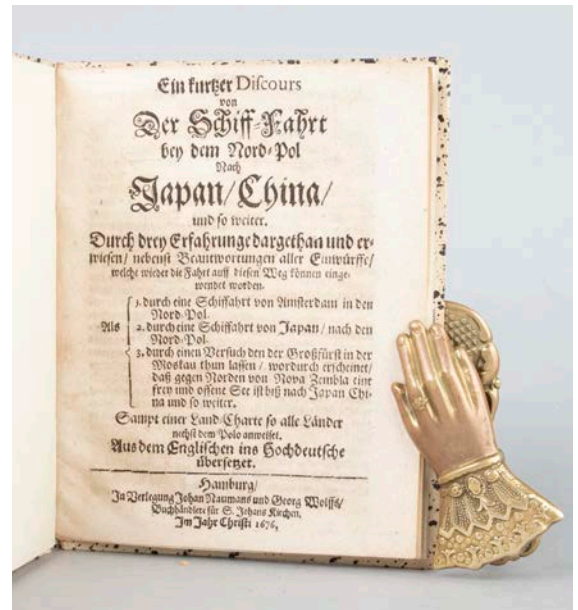 Ein kurtzer Discours
von
Der Schiff-Fahrt
bey dem Nord-Pol
Nach
Japan/China/
und so weiter.
Durch drey Erfahrunge dargethan und er-
wiesen/ nebenst Beantwortungen aller Einwürffe/
welche wieder die Fahrt auff diesen Weg können einge-
wendet worden.
1. durch eine Schiffahrt von Amsterdam in den
Nord-Pol.
Als 2. durch eine Schiffahrt von Japan/ nach den
Nord-Pol.
3. durch einen Versuch den der Großfürst in der
Moskau thun lassen/ wordurch erscheinet/
daß gegen Norden von Nova Zembla eine
frey und offene See ist biß nach Japan Chi-
na und so weiter.
Sampt einer Land-Charte so alle Länder
nechst dem Polo anweiset.
Aus dem Englischen ins Hochdeutsche
übersetzet.
Hamburg/
In Verlegung Johan Naumans und Georg Wolffs/
Buchhändlere für S. Johans Kirchen,
Im Jahr Christi 1676,